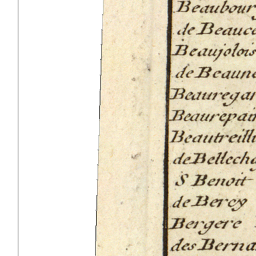 Beaubour
de Beauce
Beaujolois
de Beaune
Beauregar
Beaurepair
Beautreilli
de Bellecha
S Benoit
de Bercy
Bergere
des Berna